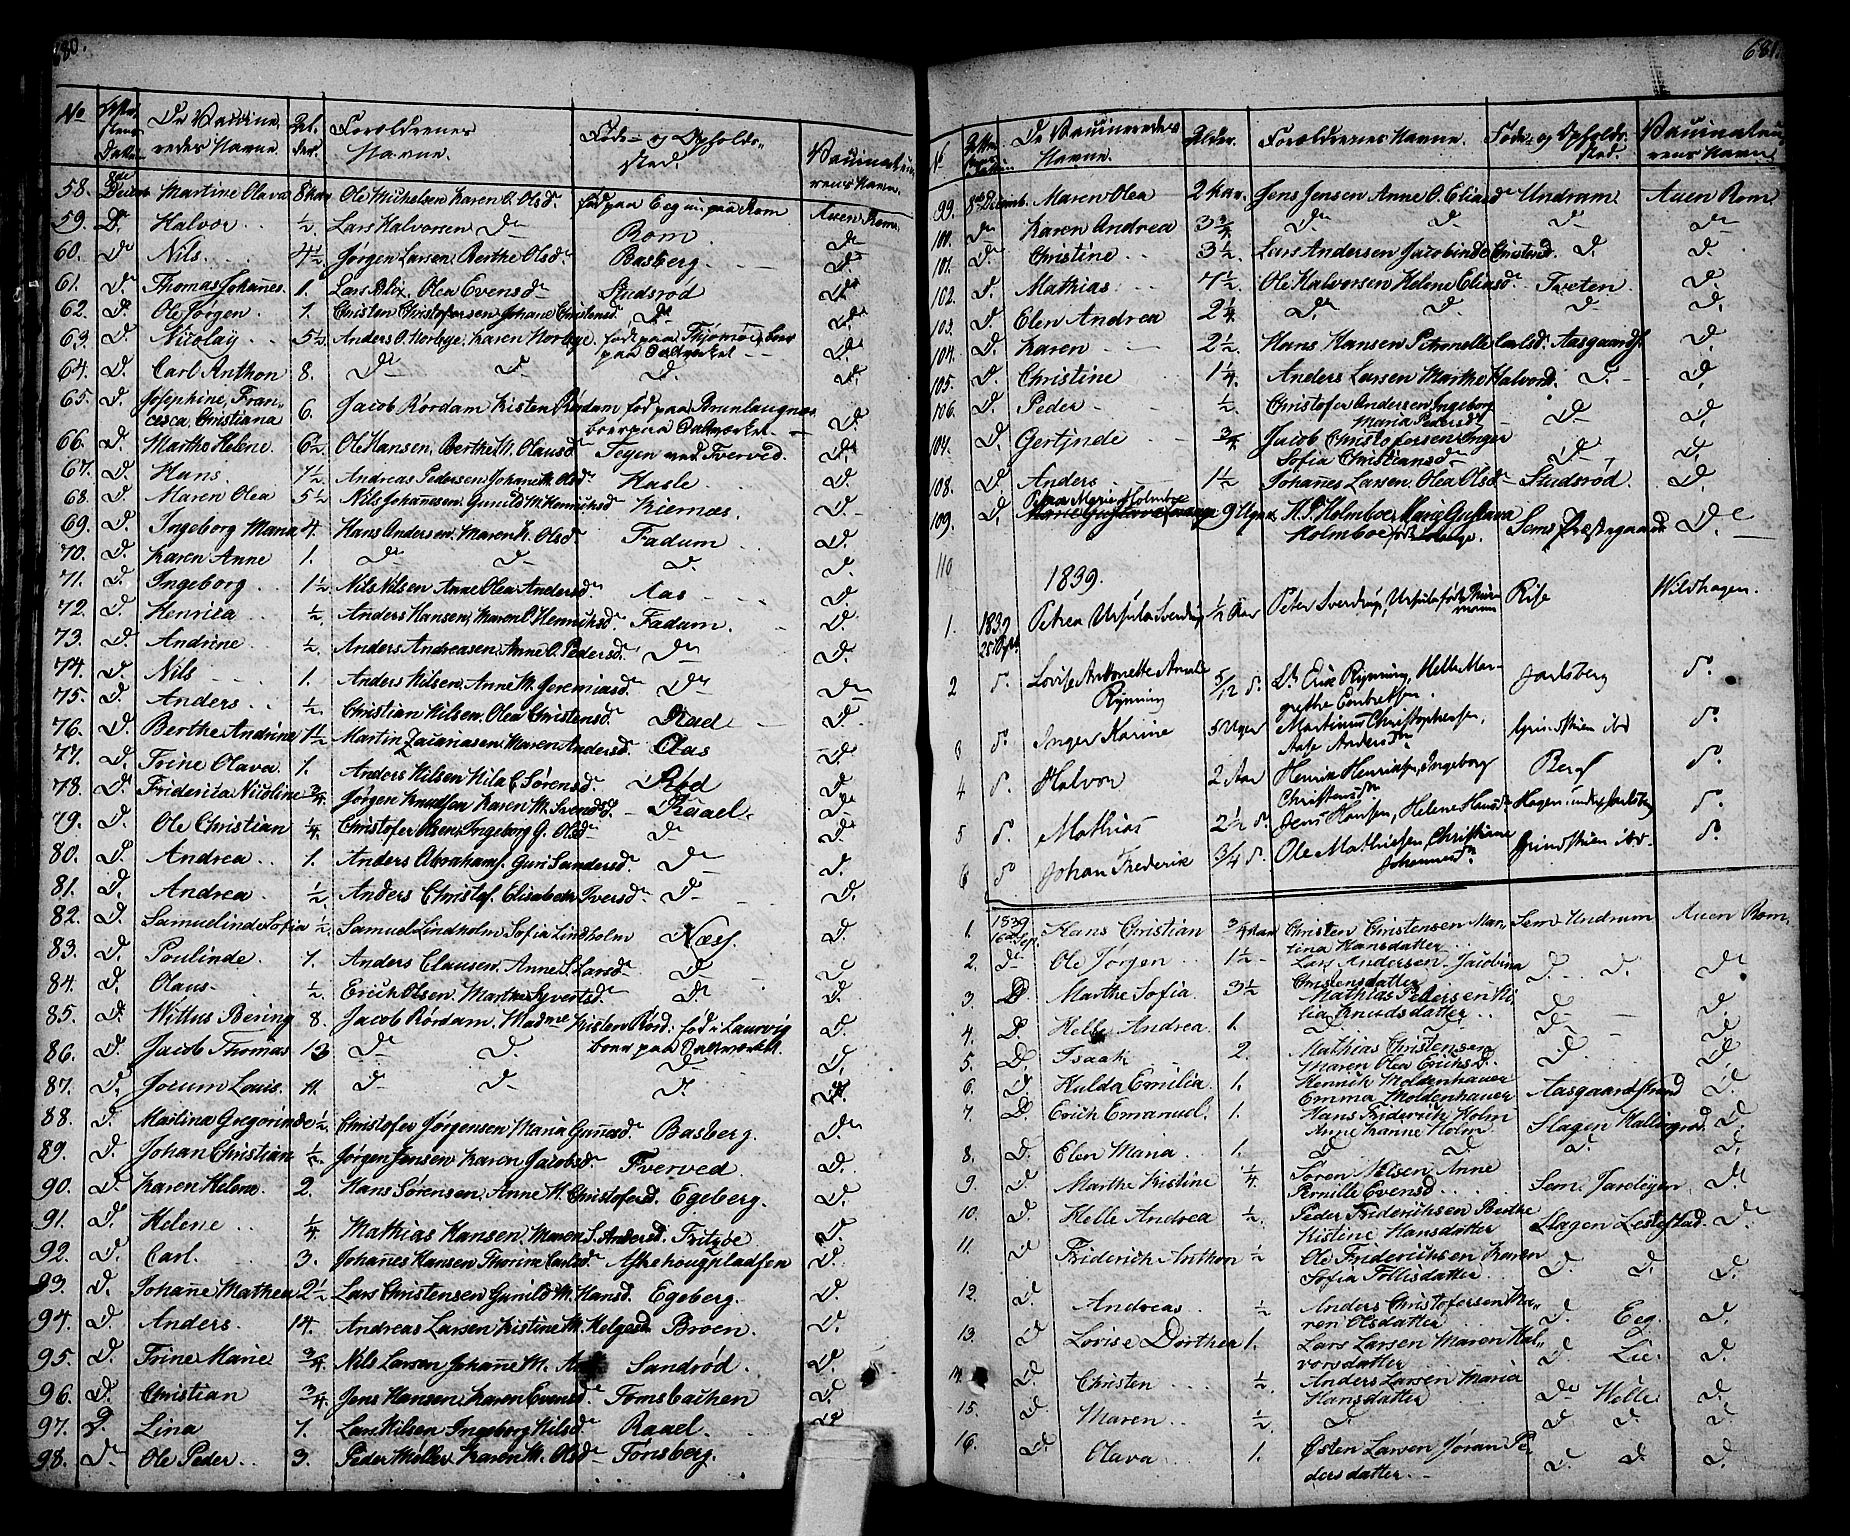 680.
No Attestens Datum De Vaccineredes Navne. Alder. Forældrenes Navne. Føde- og Opholdssted. Vaccinateurens Navn.
58. 8de Decemb Martine Olava 8 Aar Ole Michelsen Karen O. Olsd. fød paa Eeg nu paa Rom Auen Rom.
59. D. Halvor ½ Lars Halvorsen D. Rom. D.
60. D. Nils 4½ Jørgen Larsen, Berthe Olsd. Basberg. D.
61. D. Thomas Johanes. 1. Lars Blix, Olea Evensd. Studsrød D.
62. D. Ole Jørgen. 1. Christen Christofersen, Johane Christensd. D. D.
63. D. Nicolay 5½ Anders O. Norbye, Karen Norbye. fød paa Thjømøe, boer paa Valværket D.
64. D. Carl Anthon 8. D. D. D. D.
65. D. Josephine, Francesca, Christiana 6. Jacob Rørdam Kisten Rørdam fød paa Brunlaugnæs boer paa Valværket D.
66. D. Marthe Helene. 6½ Ole Hansen, Berthe M. Olausd. Tegen ved Tverved. D.
67. D. Hans. 1½ Andreas Pedersen Johane M. Olsd. Hasle. D.
68. D. Maren Olea 5½ Nils Johanesen, Gunild M. Henrichsd Kiernæs. D.
69. D. Ingeborg Maria 4. Hans Andersen, Maren K. Olsd. Fadum D.
70. D. Karen Anne 1. D. D. D. D.
71. D. Ingeborg. 1½ Nils Nilsen Anne Olea Andersd. Aas D.
72. D. Henrica ½ Anders Hansen, Karen O. Henrichsd. Fadum. D.
73. D. Andrine ½ Anders Andreasen, Anne O. Pedersd. D. D.
74. D. Nils 1. Anders Nilsen, Anne M. Jeremiasd. D. D.
75. D. Anders ½ Christian Nilsen, Olea Christensd. Rad D.
76. D. Berthe Andrine 1½ Martin Zacariasen, Maren Andersd. Aas D.
77. D. Trine Olava. 1. Anders Nilsen, Nila E. Sørensd. Rød D.
78. D. Friderica Nicoline ¾ Jørgen Knudsen Karen M. Svendsd. Raael. D.
79. D. Ole Christian ¼ Christofer Olsen, Ingeborg G. Olsd. D. D.
80. D. Andrea 1. Anders Abrahams. Guri Sandersd. D. D.
81. D. Andrea. ½ Anders Christof. Elisabeth Iversd. D. D.
82. D. Samuelinde Sofia ½ Samuel Lindholm, Sofia Lindholm Næss. D.
83. D. Poulinde. 7. Anders Clausen, Anne S. Larsd. D. D.
84. D. Olaus ½ Erich Olsen, Marthe Syvertsd. D. D.
85. D. Wittus Bering 8. Jacob Rørdam, Madme Kisten Rørd. fød i Laurvig boer paa Valværket. D.
86. D. Jacob Thomas 13 D. D. D. D.
87. D. Jocum Louis. 11. D. D. D. D.
88. D. Martina Gregorinde ½ Christofer Jørgensen Maria Gunesd. Basberg. D.
89. D. Johan Christian ½ Jørgen Jensen Karen Jacobsd. Tverved D.
90. D. Karen Helena. 2. Hans Sørensen, Anne M. Christofersd. Egeberg. D.
91. D. Helene ¼ Mathias Hansen, Maren S. Andersd. Fritzøe D.
92. D. Carl. 3. Johanes Hansen Thorine Carlsd. Askehougpladsen D.
93. D. Johane Mathea 2½ Lars Christensen Gunild M. Hansd. Egeberg. D.
94. D. Anders. 14. Andreas Larsen Kistine M. Helgesd Broen. D.
95. D. Trine Marie ¾ Nils Larsen Johane M. Sandrød. D.
96. D. Christian ¾ Jens Hansen, Karen Evensd. Tomsbakken D.
97. D. Lina 7. Lars Nilsen Ingeborg Nilsd. Raael. D.
98. D. Ole Peder 3. Peder Møller Karen M. Olsd. Tønsberg.
681.
No Attestens Datum De Vaccineredes Navne. Alder. Forældrenes Navne. Føde- og Opholdssted. Vaccinateurens Navn.
99. 8de Decemb. Maren Olea 2 Aar. Jens Jensen Anne O. Eliasd Undrum. Auen Rom.
100. D. Karen Andrea 3¾ D. D. D. D.
101. D. Christine 3½ Lars Andersen Jacobinde Christensd. D. D.
102. D. Mathias 4½ Ole Halvorsen Helene Eliasd. Tveten D.
103. D. Elen Andrea 2¼ D. D. D. D.
104. D. Karen 2½ Hans Hansen Petronelle Carlsd. Aasgaards. D.
105. D. Christine 1¼ Anders Larsen Marthe Halvord. D. D.
106. D. Peder ½ Christofer Andersen, Ingeborg Maria Pedersd D. D.
104. D. Gertjnde ¾ Jacob Christofersen Inger Sofia Christiansd. D. D.
108. D. Anders 1½ Johanes Larsen, Olea Olsd. Studsrød D.
109. D. Petra Marie Holmboe 9 Uger H. P. Holmboe, Marie Gustava Holmboe Sems Præstegaard D.
110
1839.
1. 1839 25 Petrea Ursula Sverdrup ½ Aar Peter Sverdrup, Ursula Rise Wildhagen.
2 do. Lovise Antonette Amalie Rynning 5/12 do. Lt. Eric Rynning, Helle Margrethe Jarlsberg do.
3 do. Inger Karine 5 Uger Martinus Christophersen, Aase Andersdn Grindstien ibd do.
4 do. Halvor 2 Aar Henrik Henriksen, Ingeborg Christensdn Berg do.
5 do. Mathias 2½ do Jens Hansen, Helene Hansd Hagen under Jarlsberg do.
6 do. Johan Frederik 3/4 do. Ole Mathiesen, Christiane Johannesdn Grindstien ibd. do.
1. 1839 16de Sep. Hans Christian ¾ Aar Christen Christensen Martina Hansdatter Sem Undrum Auen Rom.
2. D. Ole Jørgen 1½ Lars Andersen Jacobina Christensdatter D. D. D.
3. D Marthe Sofia. 3½ Mathias Pedersen Kilia Knudsdatter D. D.
4. D. Helle Andrea. 1. D. D. D. D.
5. D. Isaak 2. Mathias Christensen Maren Olea Erichsd. D. D.
6. D. Hulda Emilia. 1. Henrik Moldenhauer Emma Moldenhauer Aasgaardstrand D.
7. D. Erich Emanuel. 1. Hans Friderich Holm Anne Karine Holm Slagen Hallingrød. D.
8. D. Elen Maria 1. D. D. D. D.
9. D. Marthe Kistine ¼ Søren Nilsen Anne Pernille Evensd. Sem. Jareteyen D.
10. D. Helle Andrea ½ Peder Friderichsen Berthe Kistine Hansdatter Slagen Lestestad. D.
11. D Friderich Anthon ½ Ole Friderichsen Karen Sofia Tollisdatter D. D. D.
12. D. Andreas. ½ Anders Christofersen Maren Olsdatter D. Eeg. D.
13. D. Lovise Dorthea 1. Lars Larsen Maren Halvorsdatter D. Lie. D.
14. D. Christen ½ Anders Larsen Maria Hansdatter D. Helle D.
15. D. Maren ½ D. D. D. D.
16. D. Olava 1. Østen Larsen Jøran Pedersdatter D. D. D.